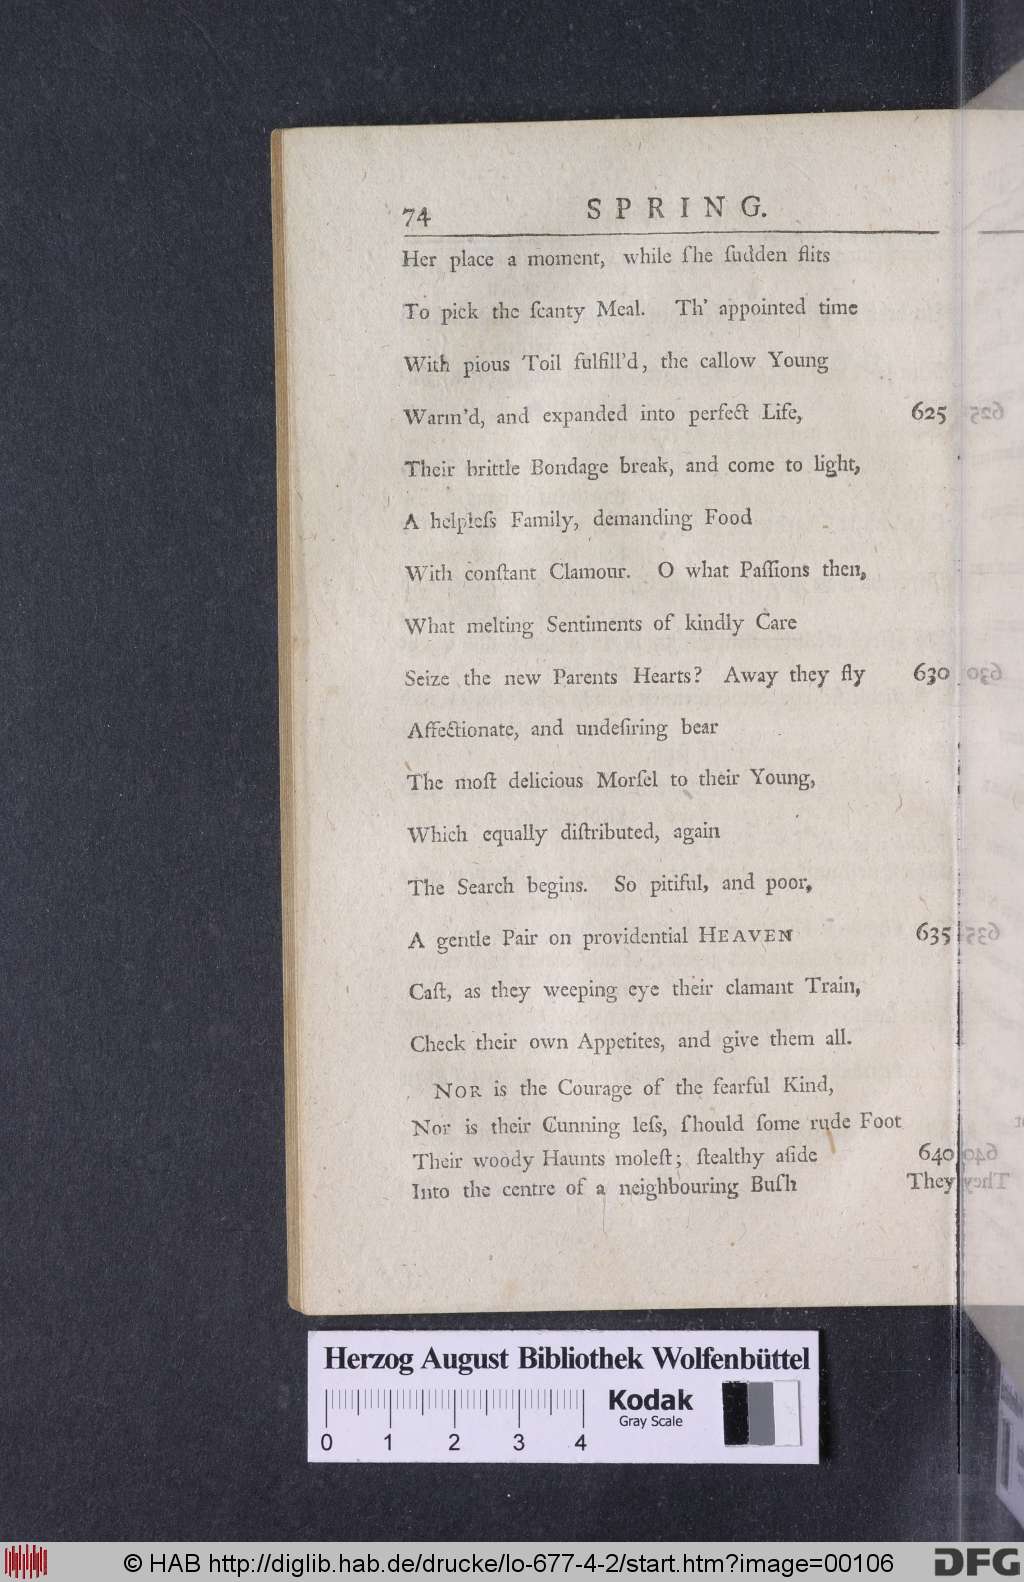 74 SPRING.
Her place a moment, while ſhe ſudden flits
To pick the ſcanty Meal. Th' appointed time
With pious Toil fulfill'd, the callow Young
Warm'd, and expanded into perfect Life, 625
Their brittle Bondage break, and come to light,
A helpleſs Family, demanding Food
With conſtant Clamour. O what Paſſions then,
What melting Sentiments of kindly Care
Seize the new Parents Hearts? Away they fly 630
Affectionate, and undeſiring bear
The moſt delicious Morſel to their Young,
Which equally diſtributed, again
The Search begins. So pitiful, and poor,
A gentle Pair on providential HEAVEN 635
Caſt, as they weeping eye their clamant Train,
Check their own Appetites, and give them all.
NOR is the Courage of the fearful Kind,
Nor is their Cunning leſs, ſhould ſome rude Foot
Their woody Haunts moleſt; ſtealthy aſide 640
Into the centre of a neighbouring Buſh
They
Herzog August Bibliothek Wolfenbüttel
0 1 2 3 4
Kodak
Gray Scale
© HAB http://diglib.hab.de/drucke/lo-677-4-2/start.htm?image=00106
DFG